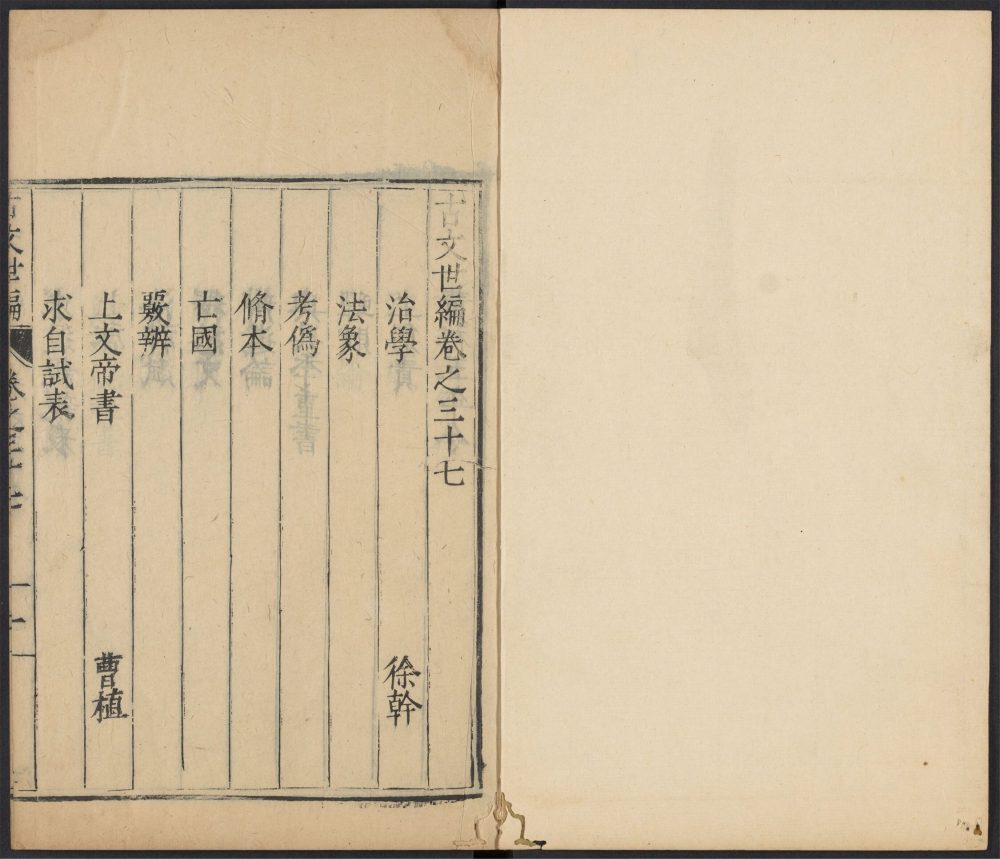 古文世編卷之三十七
治學 徐幹
法象
考偽
脩本
亡國
覈辨
上文帝書 曹植
求自試表
古文世編 卷之三十七 一